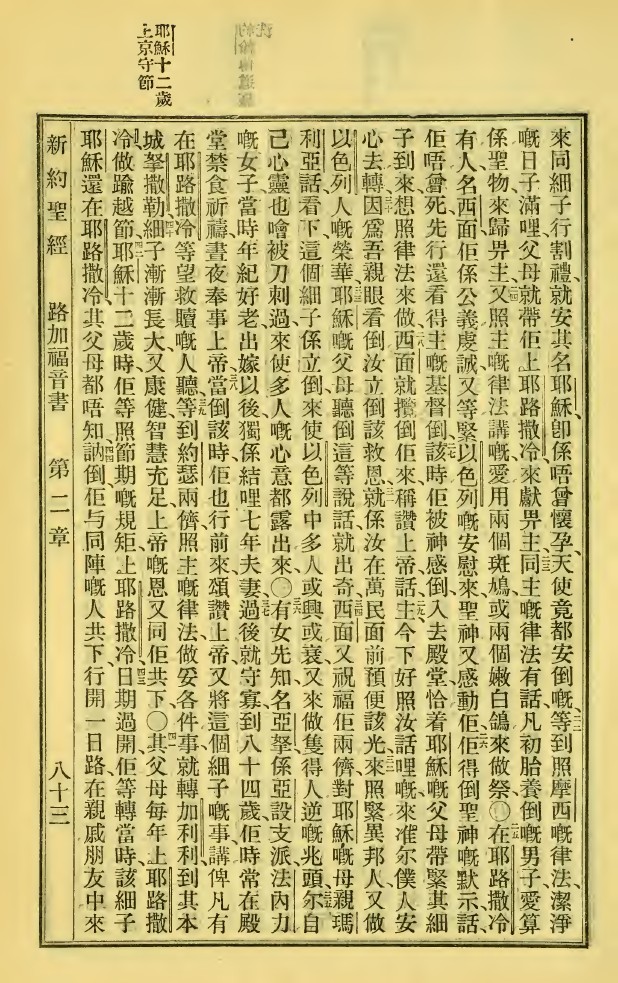 耶穌十二歲
上京守節
來同細子行割禮、就安其名耶穌、卽係唔曾懷孕、天使竟都安倒嘅、二二等到照摩西嘅律法、潔淨
嘅日子滿哩、父母就帶佢上耶路撒冷來獻畀主、二三同主嘅律法有話、凡初胎養倒嘅男子、愛算
係聖物來歸畀主、二四又照主嘅律法講嘅、愛用兩個斑鳩、或兩個嫩白鴿來做祭、〇二五在耶路撒冷
有人名西面、佢係公義虔誠、又等緊以色列嘅安慰來、聖神又感動佢、二六佢得倒聖神嘅默示話、
佢唔曾死、先行還看得主嘅基督倒、二七該時佢被神感倒、入去殿堂、恰着耶穌嘅父母帶緊其細
子到來、想照律法來做、二八西面就攬倒佢來稱讚上帝話、二九主今下好照汝話哩嘅來准尔僕人安
心去轉、三十因爲吾親眼看倒汝立倒該救恩、三一就係汝在萬民面前預便該光、三二來照緊異邦人、又做
以色列人嘅榮華、三三耶穌嘅父母聽倒這等說話、就出奇、三四西面又祝福佢兩儕、對耶穌嘅母親瑪
利亞話、看下這個細子係立倒來使以色列中多人或興或衰、又來做隻得人逆嘅兆頭、三五尔自
己心靈也噲被刀刺過、來使多人嘅心意都露出來、〇三六有女先知名亞拏、係亞設支派法內力
嘅女子、當時年紀好老、出嫁以後、獨係結哩七年夫妻、三七過後就守寡到八十四歲、佢時常在殿
堂禁食祈禱、晝夜奉事上帝、三八當倒該時、佢也行前來頌讚上帝、又將這個細子嘅事、講俾凡有
在耶路撒冷等望救贖嘅人聽、三九等到約瑟兩儕照主嘅律法做妥各件事、就轉加利利到其本
城拏撒勒、四十細子漸漸長大、又康健、智慧充足、上帝嘅恩又同佢共下、〇四一其父母每年上耶路撒
冷做踰越節、四二耶穌十二歲時、佢等照節期嘅規矩上耶路撒冷、四三日期過開、佢等轉當時、該細子
耶穌還在耶路撒冷、其父母都唔知、四四訥倒佢与同陣嘅人共下、行開一日路、在親戚朋友中來
新約聖經　路加福音書　第二章　八十三